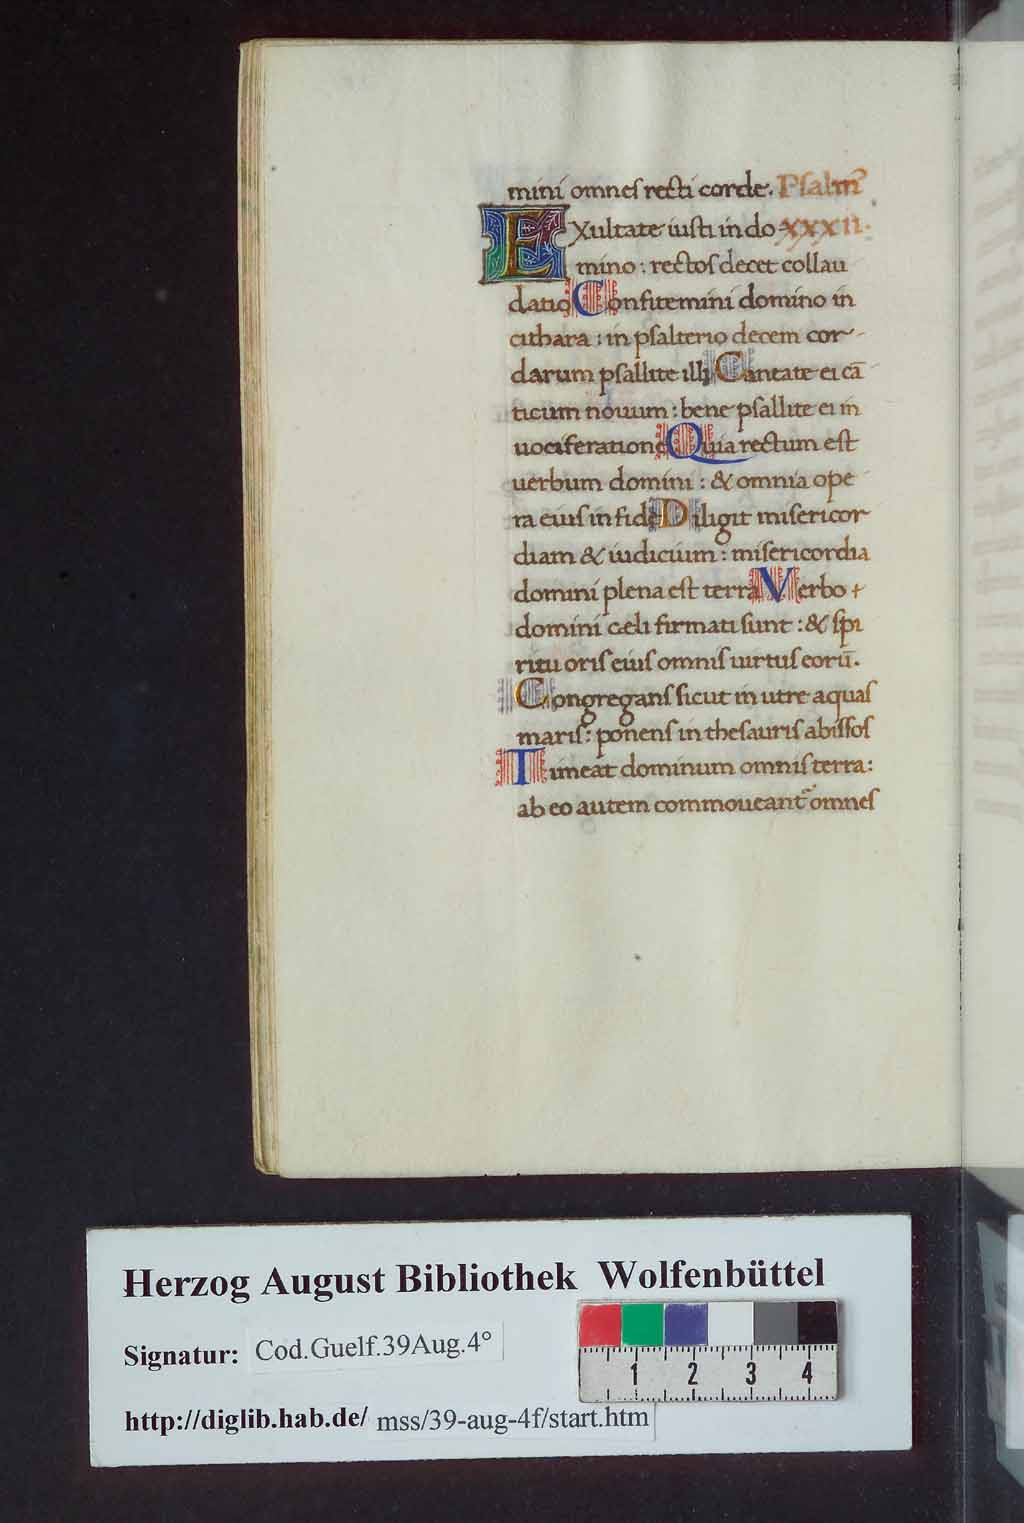 mini omnes recti corde. Psalmꝰ
EXultate iusti in do xxxii.
mino : rectos decet collau
datio Confitemini domino in
cithara : in psalterio decem cor-
darum psallite illi Cantate ei cā
ticum nouum : bene psallite ei in
uociferatione Quia rectum est
uerbum domini : & omnia ope
ra eius in fide Diligit misericor
diam & iudicium : misericordia
domini plena est terra Verbo
domini cæli firmati sunt : & spi
ritu oris eius omnis uirtus eorū.
Congregans sicut in utre aquas
maris : ponens in thesauris abissos
Timeat dominum omnis terra :
ab eo autem commoueantᷣ omnes
Herzog August Bibliothek Wolfenbüttel
Signatur: Cod.Guelf.39Aug.4°
1 2 3 4
http://diglib.hab.de/ mss/39-aug-4f/start.htm